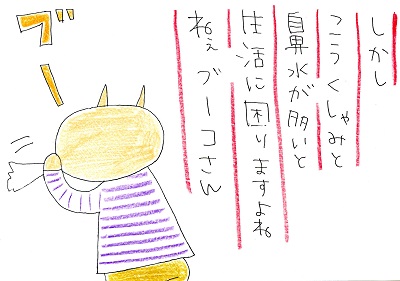 しかし
こうくしゃみと
鼻水が多いと
生活に困りますよね
ねぇ ブーコさん
ブー